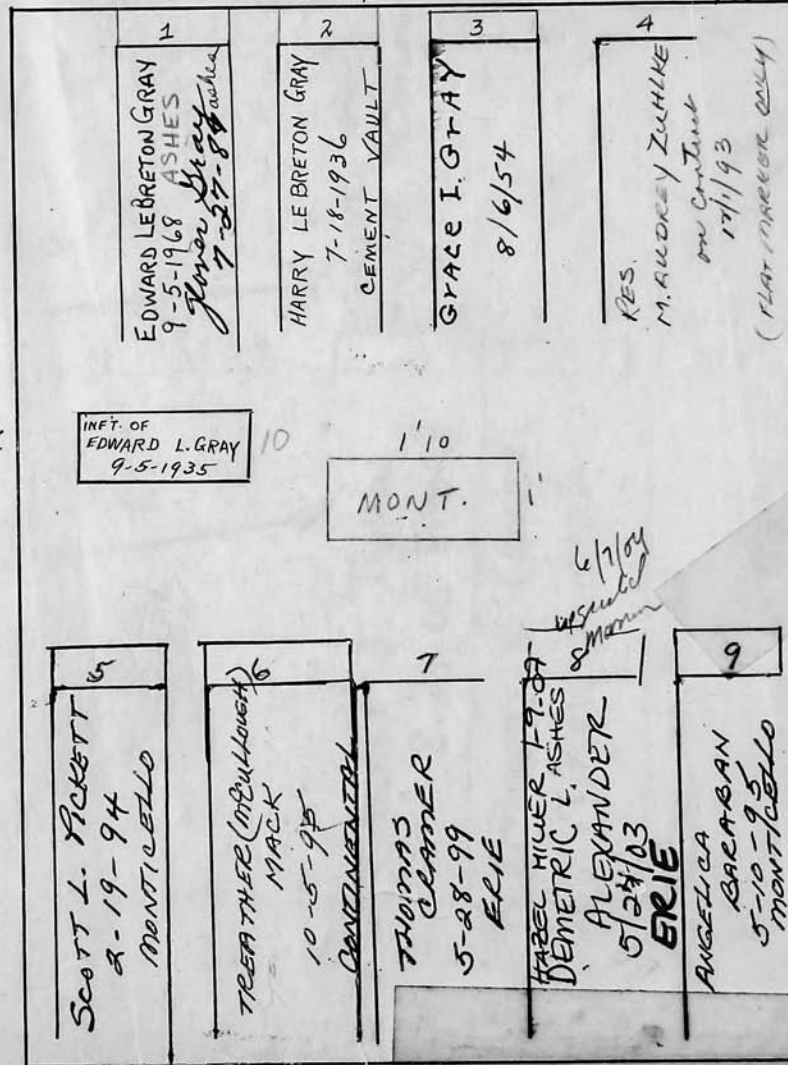 1
EDWARD LEBRETON GRAY
9-5-1968 ASHES
Gray
7-27-84 ashes
2
HARRY LE BRETON GRAY
7-18-1936
CEMENT VAULT
3
GrACE I. GrAY
8/6/54
4
RES.
M. AUDREY ZUHLKE
on Contract
12/1/93
(FLAT MARKER ONLY)
INFT. OF
EDWARD L. GRAY
9-5-1935
10
1'10
MONT.
1'
5
SCOTT L. PICKETT
2-19-94
MONTICELLO
6
TREATHER (McCULLOUGH)
MACK
10-5-95
CONTINENTAL
7
THOMAS
CRAMER
5-28-99
ERIE
6/7/04
8
HAZEL MILLER 1-9-09
DEMETRIC L. ASHES
ALEXANDER
5/24/03
ERIE
9
ANGELICA
BARABAN
5-10-95
MONTICELLO